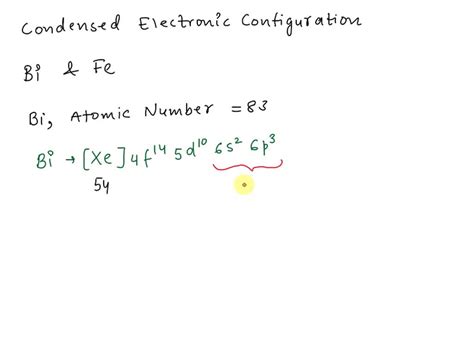 Condensed Electronic Configuration
Bi & Fe
Bi, Atomic Number = 83
Bi → [Xe] 4f¹⁴ 5d¹⁰ 6s² 6p³
54